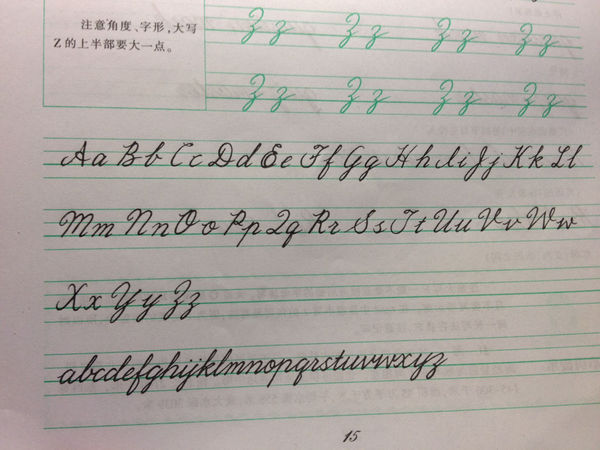 注意角度、字形,大写
Z的上半部要大一点。
Zz Zz Zz Zz
Zz Zz Zz Zz
Aa Bb Cc Dd Ee Ff Gg Hh Ii Jj Kk Ll
Mm Nn Oo Pp Qq Rr Ss Tt Uu Vv Ww
Xx Yy Zz
abcdefghijklmnopqrstuvwxyz
15